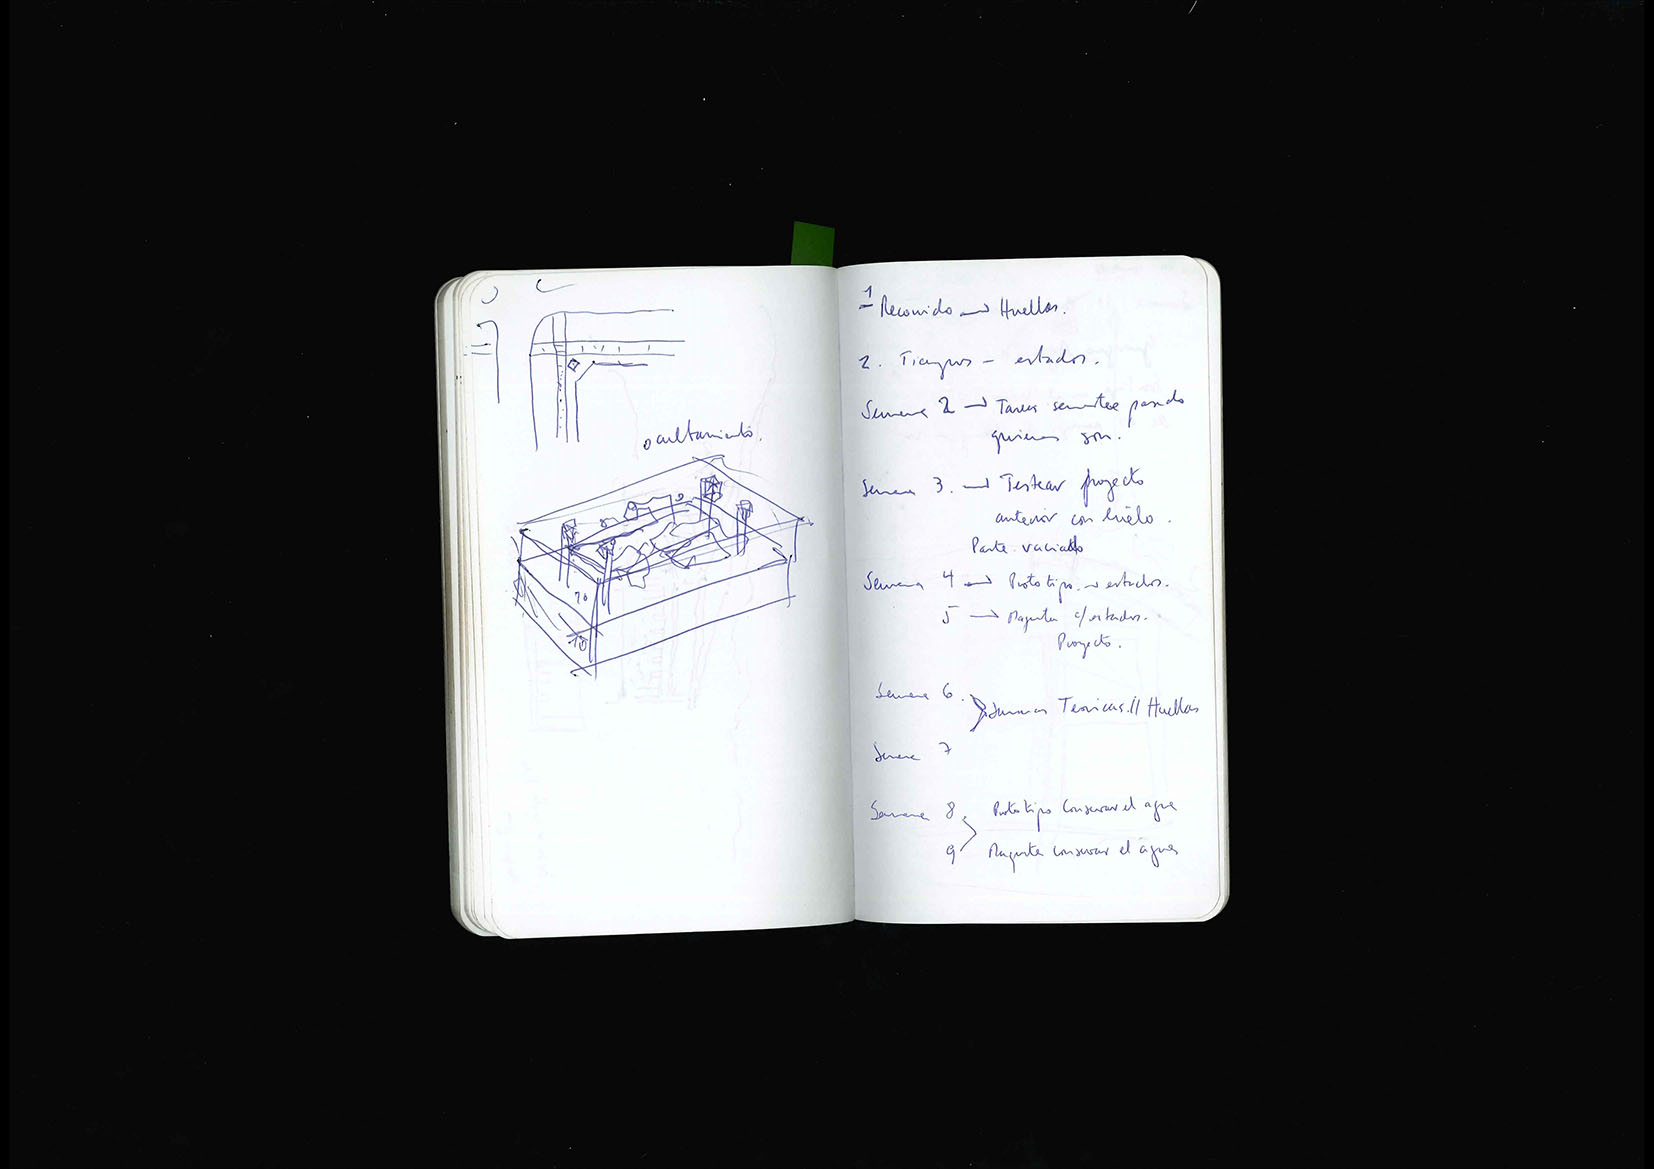 ocultamiento.
10
10
1 Recorrido → Huellas.
2. Tiempos - estados.
Semana 2 → Tarea semestre pasado
quienes son.
Semana 3. → Testear proyecto
anterior con hielo.
Parte vaciado
Semana 4 → Prototipo → estados.
5 → Maqueta c/estados.
Proyecto.
Semana 6.
Semanas Teoricas // Huellas
Semana 7
Semana 8. Prototipo conservar el agua
9 Maqueta conservar el agua